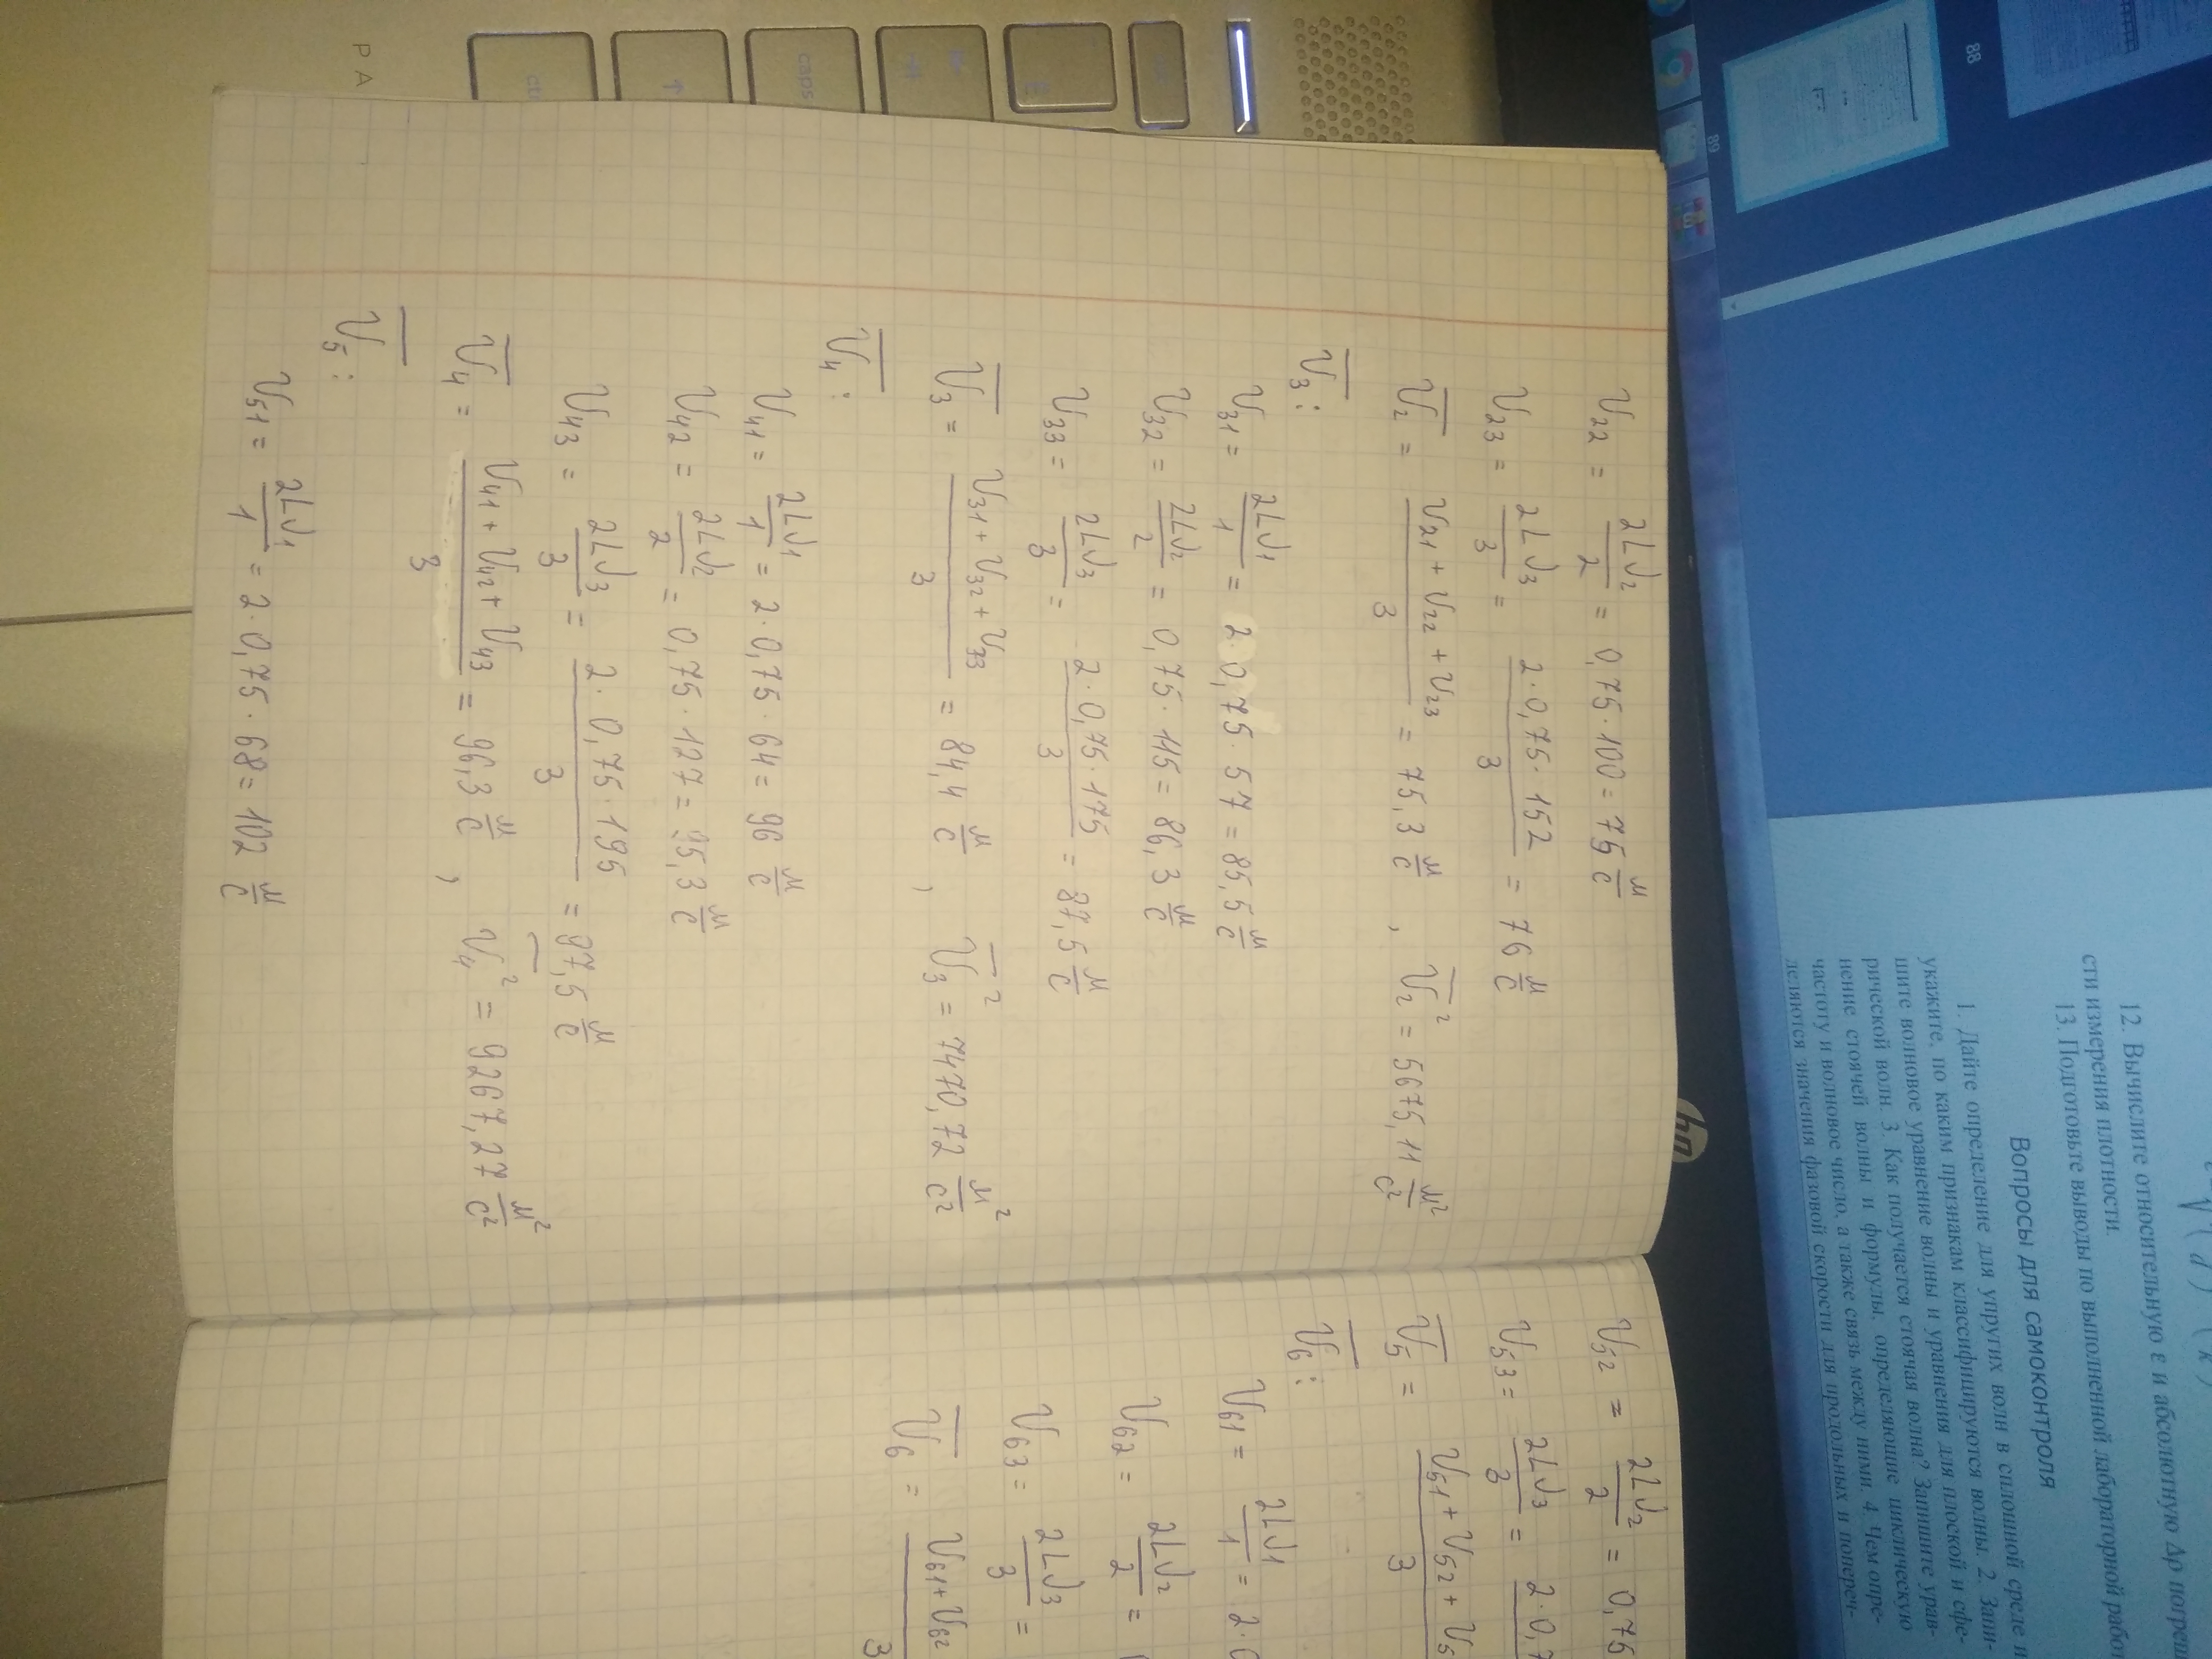 12. Вычислите относительную ε и абсолютную Δρ погреш
сти измерения плотности.
13. Подготовьте выводы по выполненной лабораторной работ
Вопросы для самоконтроля
1. Дайте определение для упругих волн в сплошной среде и
укажите, по каким признакам классифицируются волны. 2. Запи-
шите волновое уравнение волны и уравнения для плоской и сфе-
рической волн. 3. Как получается стоячая волна? Запишите урав-
нение стоячей волны и формулы, определяющие циклическую
частоту и волновое число, а также связь между ними. 4. Чем опре-
деляются значения фазовой скорости для продольных и попереч-
88
89
hp
V₂₂ = 2Lν₂/2 = 0,75·100 = 75 м/с
V₂₃ = 2Lν₃/3 = 2·0,75·152/3 = 76 м/с
V̅₂ = V₂₁ + V₂₂ + V₂₃/3 = 75,3 м/с , V̅₂² = 5675,11 м²/с²
V̅₃:
V₃₁ = 2Lν₁/1 = 2·0,75·57 = 85,5 м/с
V₃₂ = 2Lν₂/2 = 0,75·115 = 86,3 м/с
V₃₃ = 2Lν₃/3 = 2·0,75·175/3 = 87,5 м/с
V̅₃ = V₃₁ + V₃₂ + V₃₃/3 = 84,4 м/с , V̅₃² = 7470,72 м²/с²
V̅₄:
V₄₁ = 2Lν₁/1 = 2·0,75·64 = 96 м/с
V₄₂ = 2Lν₂/2 = 0,75·127 = 95,3 м/с
V₄₃ = 2Lν₃/3 = 2·0,75·195/3 = 97,5 м/с
V̅₄ = V₄₁ + V₄₂ + V₄₃/3 = 96,3 м/с , V̅₄² = 9267,27 м²/с²
V̅₅:
V₅₁ = 2Lν₁/1 = 2·0,75·68 = 102 м/с
V₅₂ = 2Lν₂/2 = 0,75
V₅₃ = 2Lν₃/3 = 2·0,7
V̅₅ = V₅₁ + V₅₂ + V₅/3
V̅₆:
V₆₁ = 2Lν₁/1 = 2·0
V₆₂ = 2Lν₂/2 =
V₆₃ = 2Lν₃/3 =
V̅₆ = V₆₁ + V₆₂/3
caps
PA